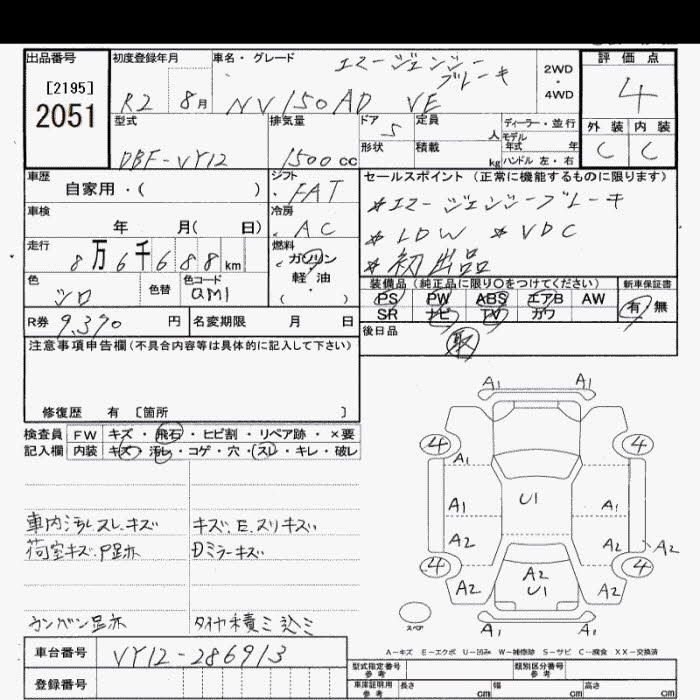 出品番号 初度登録年月 車名・グレード エマージェンシーブレーキ 2WD・4WD 評価点
[2195]
2051 R2 8月 NV150AD VE 4
型式 排気量 ドア 5 定員 人 ディーラー・並行 外装 内装
DBF-VY12 1500cc 形状 積載 kg モデル年式 年 ハンドル 左・右 C C
車歴 シフト セールスポイント(正常に機能するものに限ります)
自家用・( ) FAT *エマージェンシーブレーキ
車検 年 月( 日) 冷房 AC *LDW *VDC
走行 8万6千688km 燃料 ガソリン *初出品
色 シロ 色替 色コード QM1 軽・油・( )
装備品(純正品に限り○をつけてください) 新車保証書
PS PW ABS エアB AW 有 無
SR ナビ TV カワ
R券 9,370円 名変期限 月 日 後日品 取
注意事項申告欄(不具合内容等は具体的に記入して下さい)
修復歴 有 [箇所 ]
検査員 FW キズ・飛石・ヒビ割・リペア跡・×要
記入欄 内装 キズ・汚レ・コゲ・穴・スレ・キレ・破レ
A1 A1
4 4
A1
A1 U1 A1
A2 A2 A2
4 4
A2 A2 A2
U1
A1 A1
スペア
車内汚レ.スレ.キズ キズ.E.スリキズ
荷室キズ.P跡 Dミラーキズ
カンバン跡 タイヤ積ミ込ミ
A-キズ E-エクボ U-凹み W-補修跡 S-サビ C-腐食 XX-交換済
車台番号 VY12-286913 型式指定番号 参考 類別区分番号 参考
登録番号 車庫証明用 参考 長さ cm 幅 cm 高さ cm